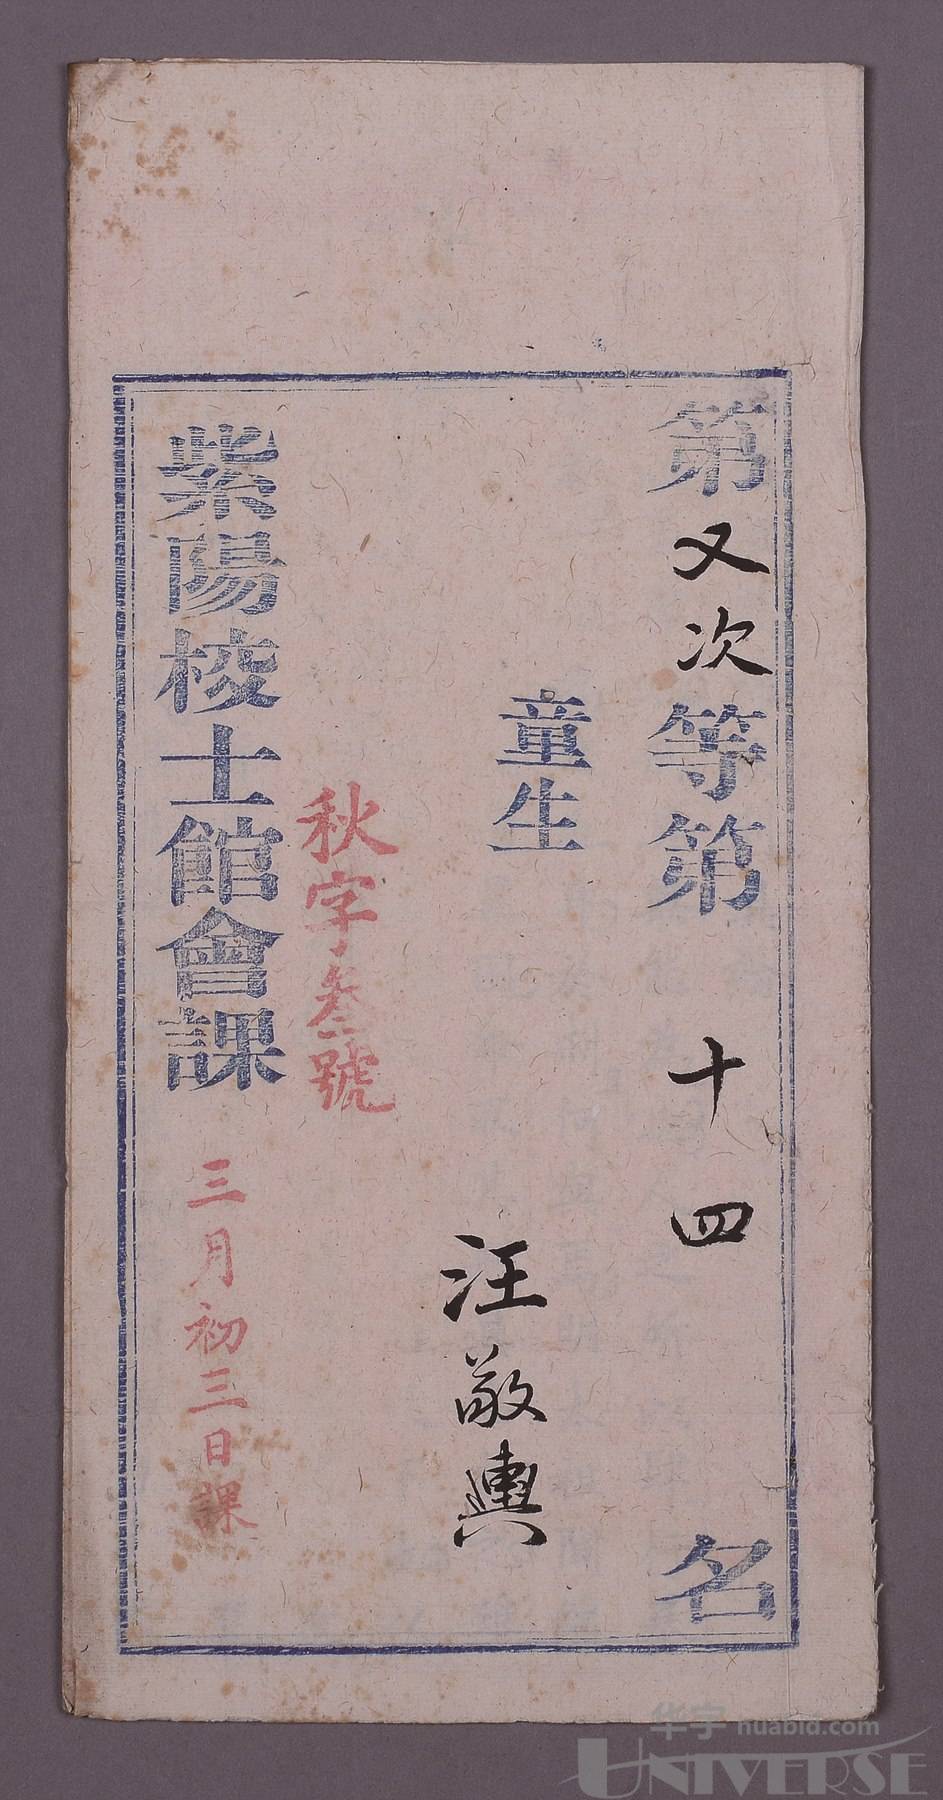 第又次等第十四名
童生 汪敬輿
秋字叁號
紫陽校士館會課 三月初三日課
华宇 huabid.com
UNIVERSE